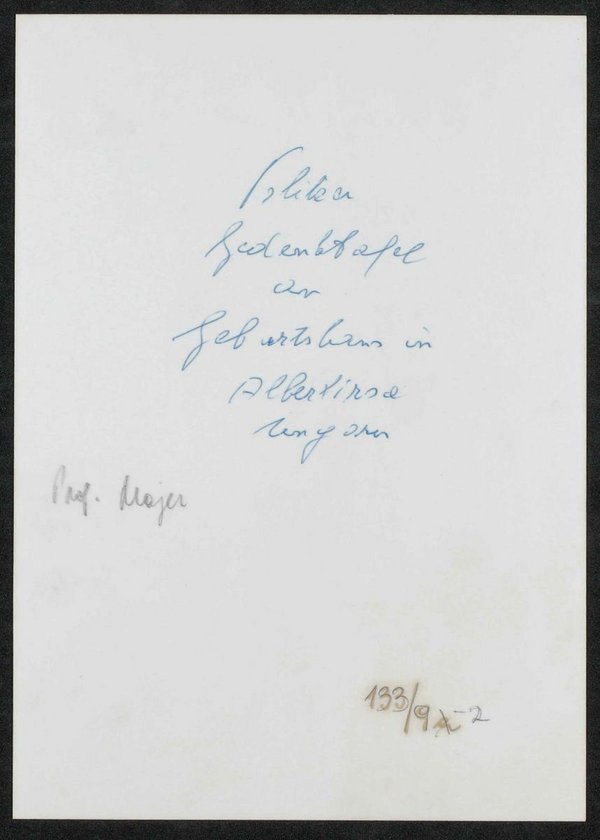 Gedenktafel
an
Geburtshaus in
Albertirsa
Ungarn
Prof. Majer
133/9 -2